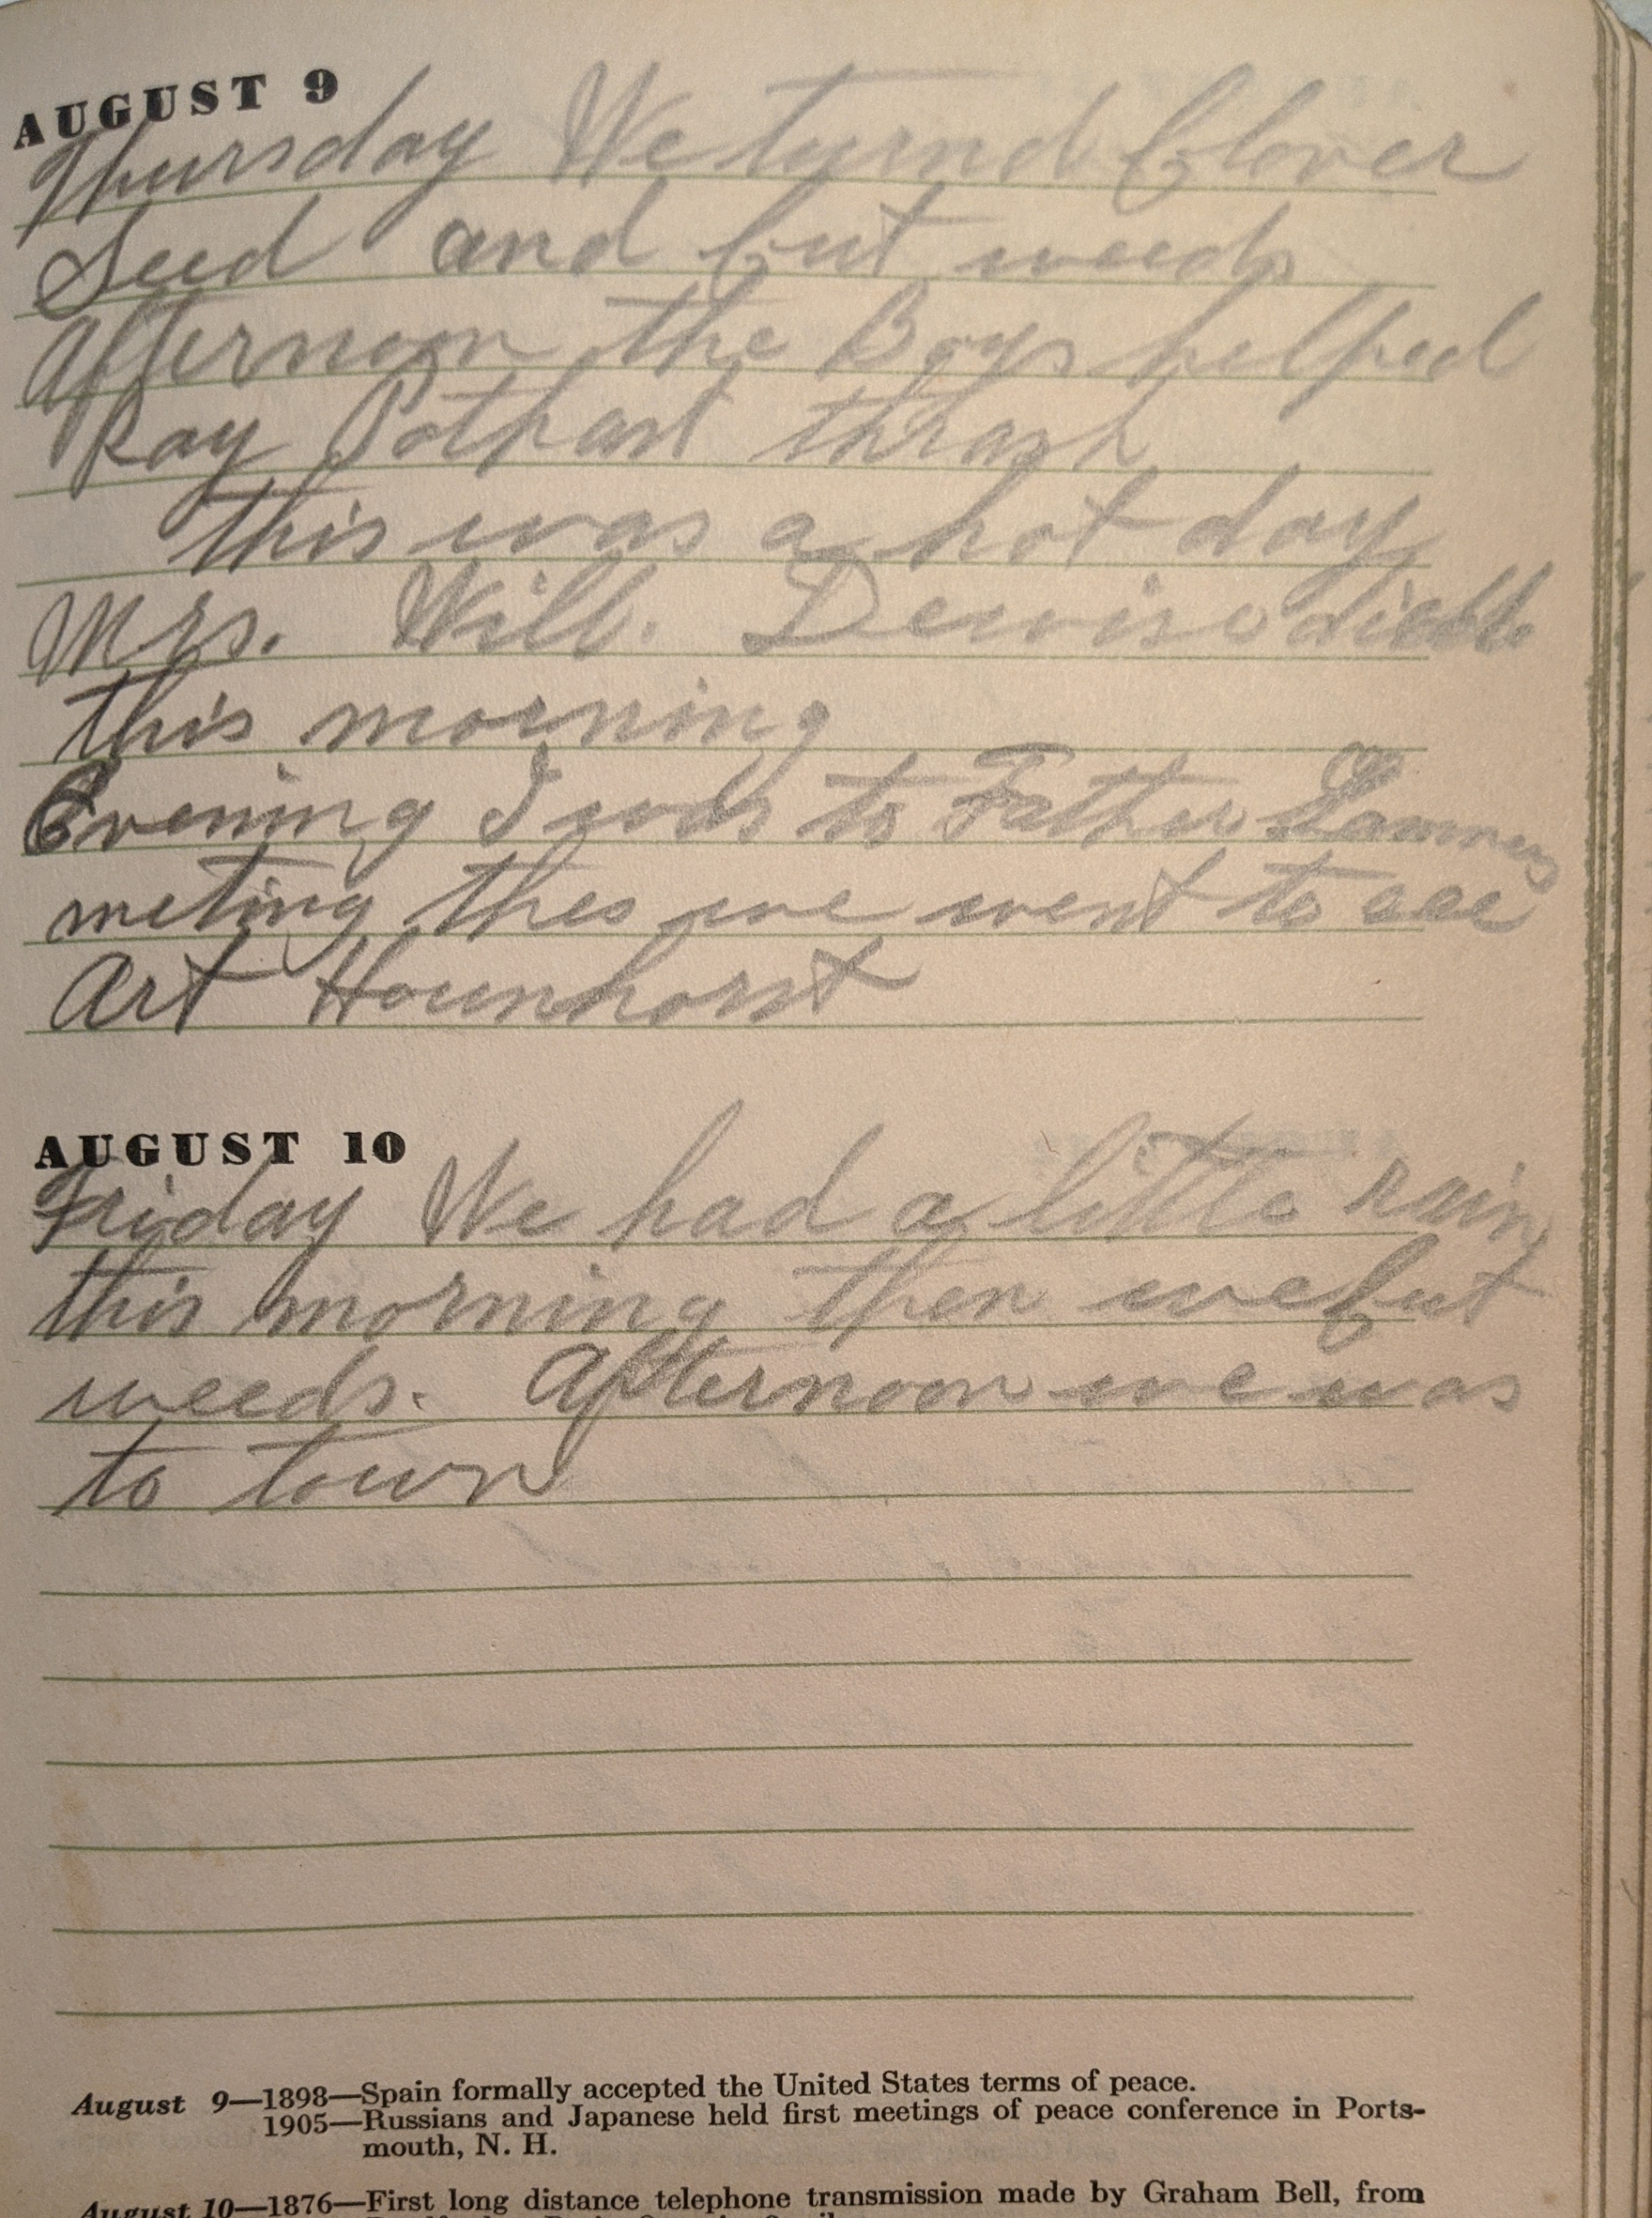 AUGUST 9
Thursday We turnd Clover
Seed and Cut weeds
Afternoon the Boys helped
Ray Pothast thrash
this was a hot day
Mrs. Will. Dewise
this morning
Evening I was to Father
meting thes we went to see
Art Hounhorst
AUGUST 10
Friday We had a little rain
this morning then we Cut
weeds. Afternoon we was
to town
August 9—1898—Spain formally accepted the United States terms of peace.
1905—Russians and Japanese held first meetings of peace conference in Ports-
mouth, N. H.
August 10—1876—First long distance telephone transmission made by Graham Bell, from